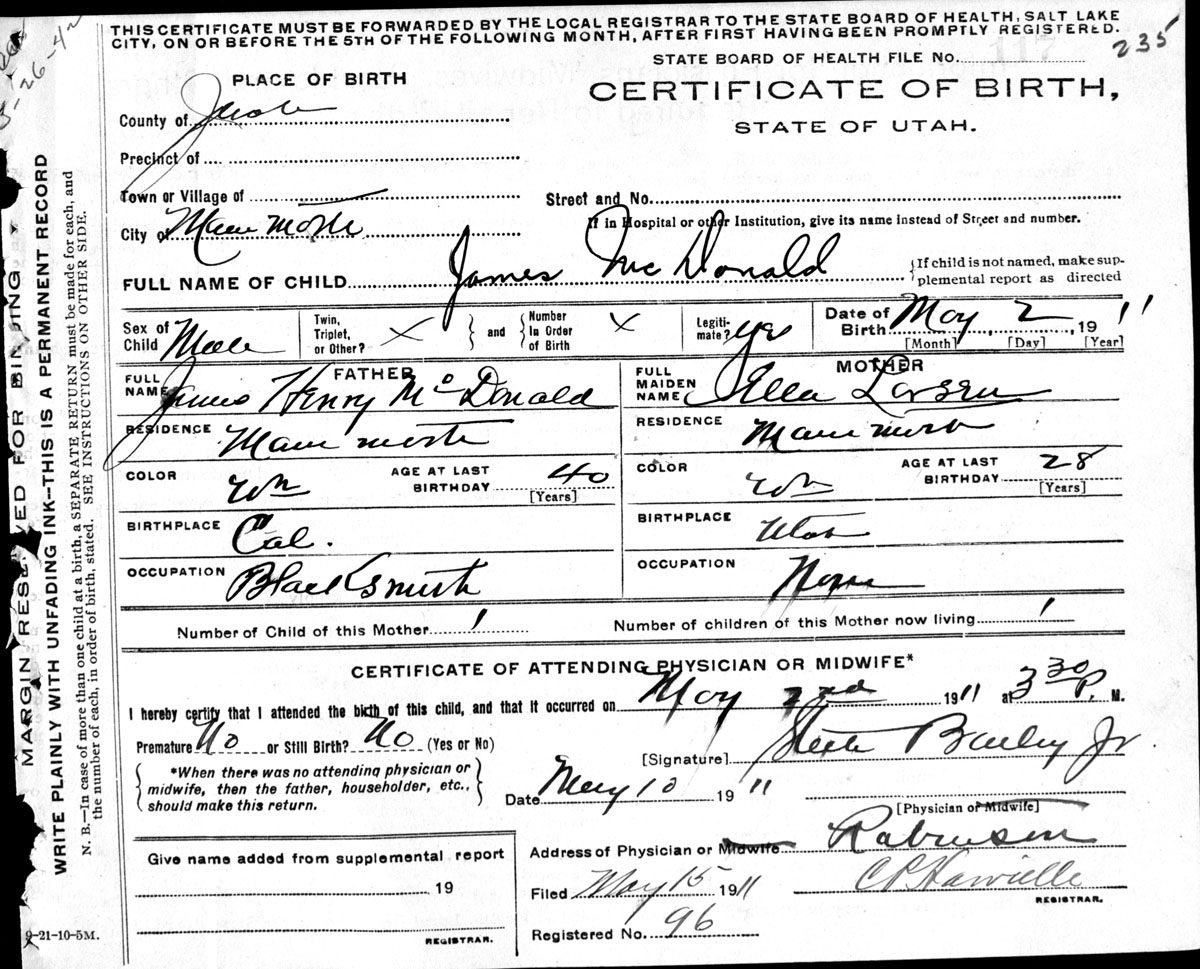 THIS CERTIFICATE MUST BE FORWARDED BY THE LOCAL REGISTRAR TO THE STATE BOARD OF HEALTH, SALT LAKE
CITY, ON OR BEFORE THE 5TH OF THE FOLLOWING MONTH, AFTER FIRST HAVING BEEN PROMPTLY REGISTERED.
235
STATE BOARD OF HEALTH FILE No. 117
PLACE OF BIRTH
CERTIFICATE OF BIRTH,
STATE OF UTAH.
County of Juab
Precinct of
Town or Village of
Street and No.
City of Mammoth
If in Hospital or other Institution, give its name instead of Street and number.
FULL NAME OF CHILD James McDonald {If child is not named, make sup-
plemental report as directed
Sex of Child Male
Twin, Triplet, or Other? X } and { Number In Order of Birth X
Legiti-mate? yes
Date of Birth May 2, 1911
[Month] [Day] [Year]
FATHER
FULL NAME James Henry McDonald
MOTHER
FULL MAIDEN NAME Ella Larsen
RESIDENCE Mammoth
RESIDENCE Mammoth
COLOR Wh AGE AT LAST BIRTHDAY 40 [Years]
COLOR Wh AGE AT LAST BIRTHDAY 28 [Years]
BIRTHPLACE Cal.
BIRTHPLACE Utah
OCCUPATION Blacksmith
OCCUPATION None
Number of Child of this Mother 1
Number of children of this Mother now living 1
CERTIFICATE OF ATTENDING PHYSICIAN OR MIDWIFE*
I hereby certify that I attended the birth of this child, and that it occurred on May 2nd 1911 at 3 30 P. M.
Premature No or Still Birth? No (Yes or No)
[Signature] Steele Bailey Jr
{ *When there was no attending physician or
midwife, then the father, householder, etc.,
should make this return. }
Date May 10 1911
[Physician or Midwife]
Address of Physician or Midwife Robinson
Give name added from supplemental report
19
REGISTRAR.
Filed May 15 1911
REGISTRAR.
Registered No. 96
9-21-10-5M.
MARGIN RESERVED FOR BINDING
WRITE PLAINLY WITH UNFADING INK—THIS IS A PERMANENT RECORD
N. B.—In case of more than one child at a birth, a SEPARATE RETURN must be made for each, and
the number of each, in order of birth, stated. SEE INSTRUCTIONS ON OTHER SIDE.